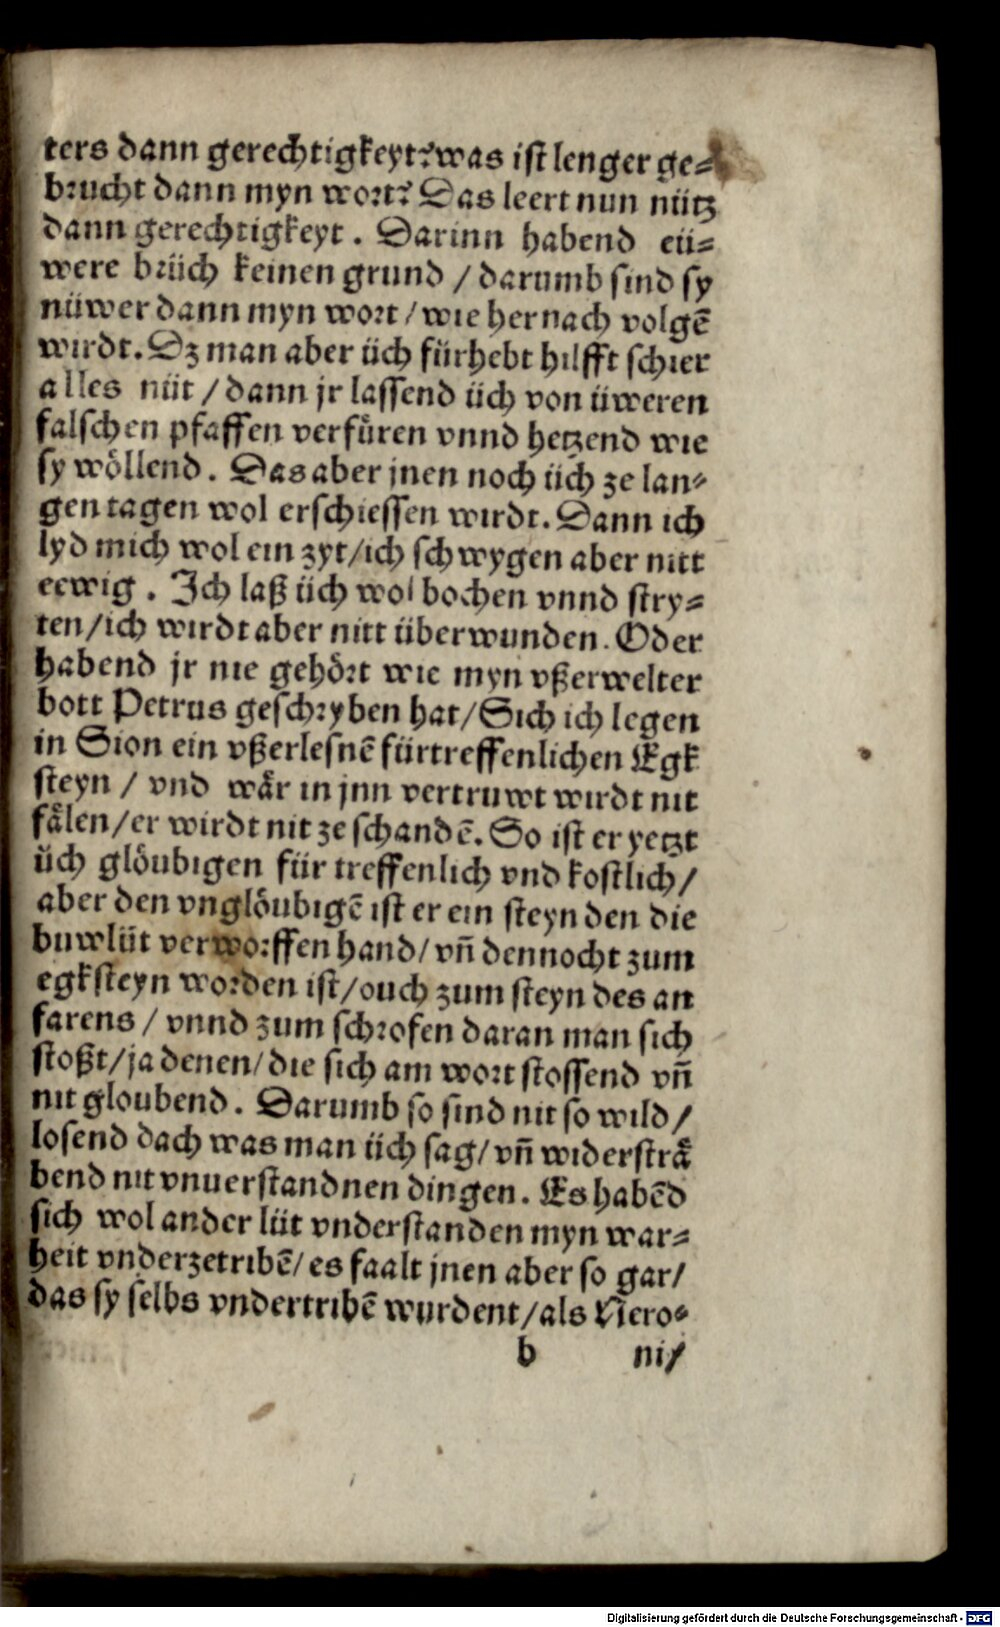 ters dann gerechtigkeyt? was ist lenger ge⸗
brucht dann myn wort? Das leert nun nütz
dann gerechtigkeyt. Darinn habend eü⸗
were brüch keinen grund / darumb sind sy
nüwer dann myn wort / wie hernach volgē
wirdt. Dz man aber üch fürhebt hilfft schier
alles nüt / dann jr lassend üch von üweren
falschen pfaffen verfüren vnnd hetzend wie
sy wöllend. Das aber jnen noch üch ze lan⸗
gen tagen wol erschiessen wirdt. Dann ich
lyd mich wol ein zyt / ich schwygen aber nitt
eewig. Ich laß üch wol bochen vnnd stry⸗
ten / ich wirdt aber nitt überwunden. Oder
habend jr nie gehört wie myn vßerwelter
bott Petrus geschryben hat / Sich ich legen
in Sion ein vßerlesnē fürtreffenlichen Egk
steyn / vnd wär in jnn vertruwt wirdt nit
fälen / er wirdt nit ze schandē. So ist er yetzt
üch glöubigen für treffenlich vnd kostlich /
aber den vnglöubigē ist er ein steyn den die
buwlüt verworffen hand / vn̄ dennocht zum
egksteyn worden ist / ouch zum steyn des an
farens / vnnd zum schrofen daran man sich
stoßt / ja denen / die sich am wort stossend vn̄
nit gloubend. Darumb so sind nit so wild /
losend dach was man üch sag / vn̄ widersträ
bend nit vnuerstandnen dingen. Es habēd
sich wol ander lüt vnderstanden myn war⸗
heit vnderzetribē / es faalt jnen aber so gar /
das sy selbs vndertribē wurdent / als Nero⸗
b nis
Digitalisierung gefördert durch die Deutsche Forschungsgemeinschaft - DFG